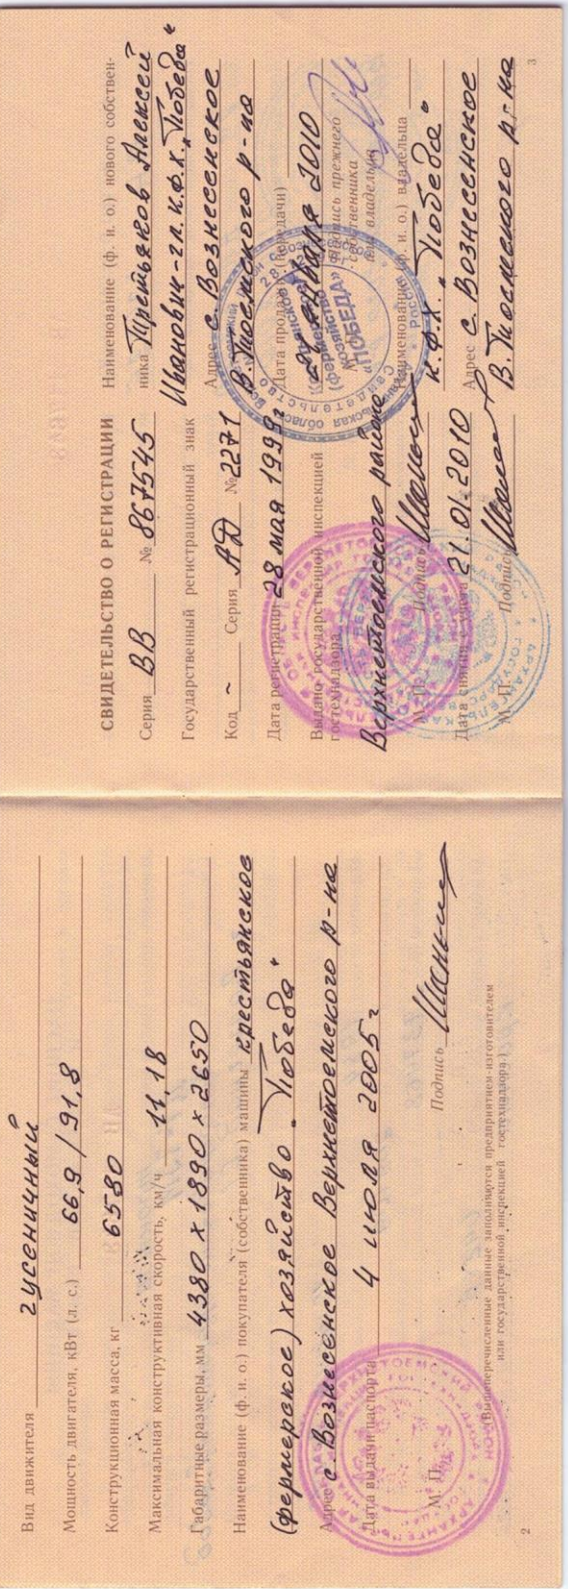 Вид движителя гусеничный
Мощность двигателя, кВт (л. с.) 66,9 / 91,8
Конструкционная масса, кг 6580
Максимальная конструктивная скорость, км/ч 11,18
Габаритные размеры, мм 4380 х 1890 х 2650
Наименование (ф. и. о.) покупателя (собственника) машины крестьянское
(фермерское) хозяйство „Победа“
Адрес с. Вознесенское Верхнетоемского р-на
Дата выдачи паспорта 4 июля 2005г
М. П. Подпись
Вышеперечисленные данные заполняются предприятием-изготовителем
или государственной инспекцией гостехнадзора.
2
СВИДЕТЕЛЬСТВО О РЕГИСТРАЦИИ
Серия ВВ № 867545
Государственный регистрационный знак
Код ~ Серия АД № 2271
Дата регистрации 28 мая 1999г
Выдано государственной инспекцией
гостехнадзора
Верхнетоемского района
М. П. Подпись
Дата снятия с учета 21.01.2010
М. П. Подпись
Наименование (ф. и. о.) нового собствен-
ника Третьяков Алексей
Иванович - гл. К.Ф.Х. „Победа“
Адрес с. Вознесенское
В. Тоемского р-на
Дата продажи (передачи)
января 2010
Подпись прежнего
собственника
или владельца
Наименование (ф. и. о.) владельца
К.Ф.Х. „Победа“
Адрес с. Вознесенское
В. Тоемского р-на
3
(фермерское)
хозяйство
"ПОБЕДА"
Свидетельство